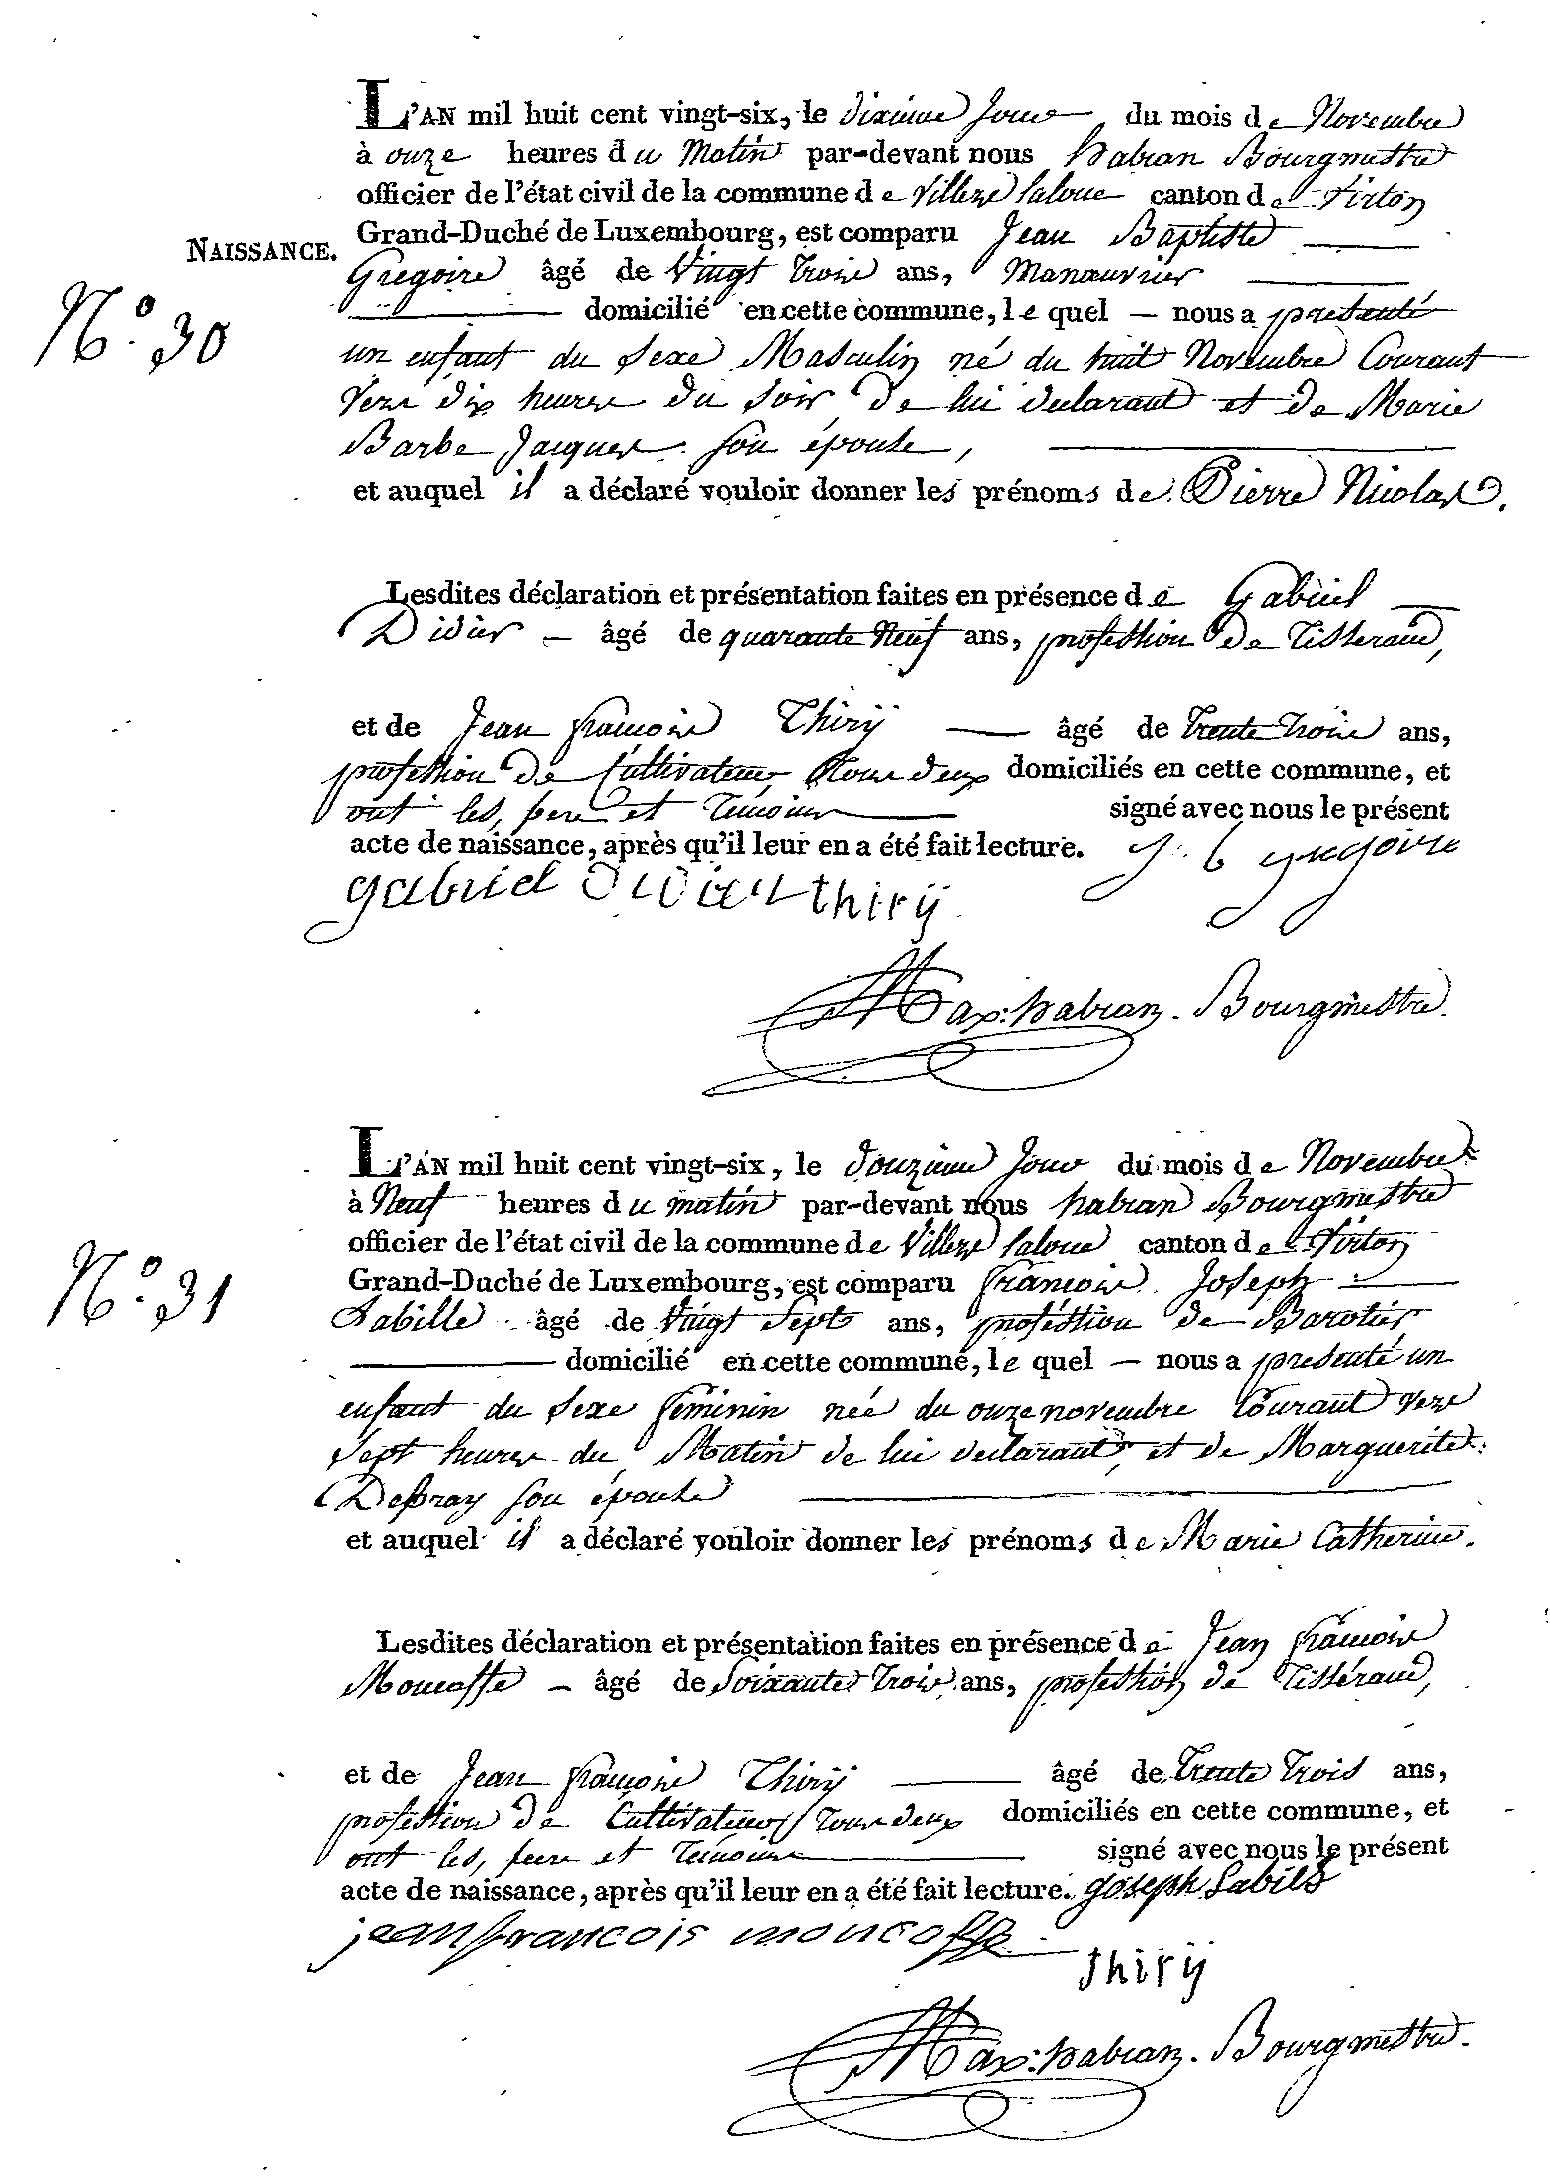 L'AN mil huit cent vingt-six, le dixieme jour du mois de Novembre
à onze heures du Matin par-devant nous habran Bourgmestre
officier de l'état civil de la commune de Villers laloue canton de Virton
Grand-Duché de Luxembourg, est comparu Jean Baptiste
NAISSANCE.
Gregoire âgé de Vingt trois ans, Manœuvrier
N.o 30
domicilié en cette commune, le quel — nous a presenté
un enfant du sexe Masculin né du huit Novembre Courant
vers dix heures du soir de lui declarant et de Marie
Barbe Jacques son épouse,
et auquel il a déclaré vouloir donner les prénoms de Pierre Nicolas.
Lesdites déclaration et présentation faites en présence de Gabriel
Didier — âgé de quarante Neuf ans, profession de Tisserand,
et de Jean françois Thirÿ âgé de Trente trois ans,
profession de Cultivateur, tous deux domiciliés en cette commune, et
ont les, pere et Témoins signé avec nous le présent
acte de naissance, après qu'il leur en a été fait lecture. J. b gregoire
gabriel didier thirÿ
Max: habran. Bourgmestre.
L'AN mil huit cent vingt-six, le douzieme jour du mois de Novembre
à Neuf heures du matin par-devant nous habran Bourgmestre
officier de l'état civil de la commune de Villers laloue canton de Virton
N.o 31
Grand-Duché de Luxembourg, est comparu françois Joseph
Labille âgé de Vingt Sept ans, profession de Barotier
domicilié en cette commune, le quel — nous a presenté un
enfant du sexe féminin née du onze novembre Courant vers
Sept heures du Matin de lui declarant, et de Marguerite
Defray son épouse
et auquel il a déclaré vouloir donner les prénoms de Marie Catherine.
Lesdites déclaration et présentation faites en présence de Jean françois
Moucoffe — âgé de Soixante Trois ans, profession de Tisserand,
et de Jean françois Thirÿ âgé de Trente Trois ans,
profession de Cultivateur, tous deux domiciliés en cette commune, et
ont les, pere et Témoins signé avec nous le présent
acte de naissance, après qu'il leur en a été fait lecture. joseph Labille
jean francois moucoffe
thirÿ
Max: habran. Bourgmestre.